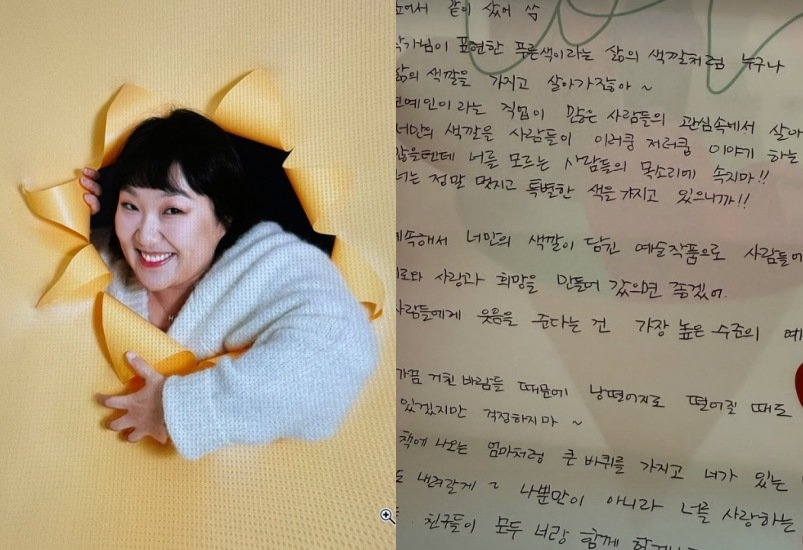 에서 같이 샀어 씀
작가님이 표현한 푸른색이라는 삶의 색깔처럼 누구나
삶의 색깔을 가지고 살아가잖아 ~
연예인이라는 직업이 많은 사람들의 관심속에서 살아
너만의 색깔을 사람들이 이러쿵 저러쿵 이야기 하는
많을텐데 너를 모르는 사람들의 목소리에 속지마!!
너는 정말 멋지고 특별한 색을 가지고 있으니까!!
계속해서 너만의 색깔이 담긴 예술작품으로 사람들에
위로와 사랑과 희망을 만들어 갔으면 좋겠어.
사람들에게 웃음을 준다는 건 가장 높은 수준의 예
가끔 거친 바람들 때문에 낭떨어지로 떨어질 때도
있겠지만 걱정하지마 ~
책에 나오는 엄마처럼 큰 바퀴를 가지고 너가 있는
도 내려갈게 ~ 나뿐만이 아니라 너를 사랑하는
친구들이 모두 너랑 함께